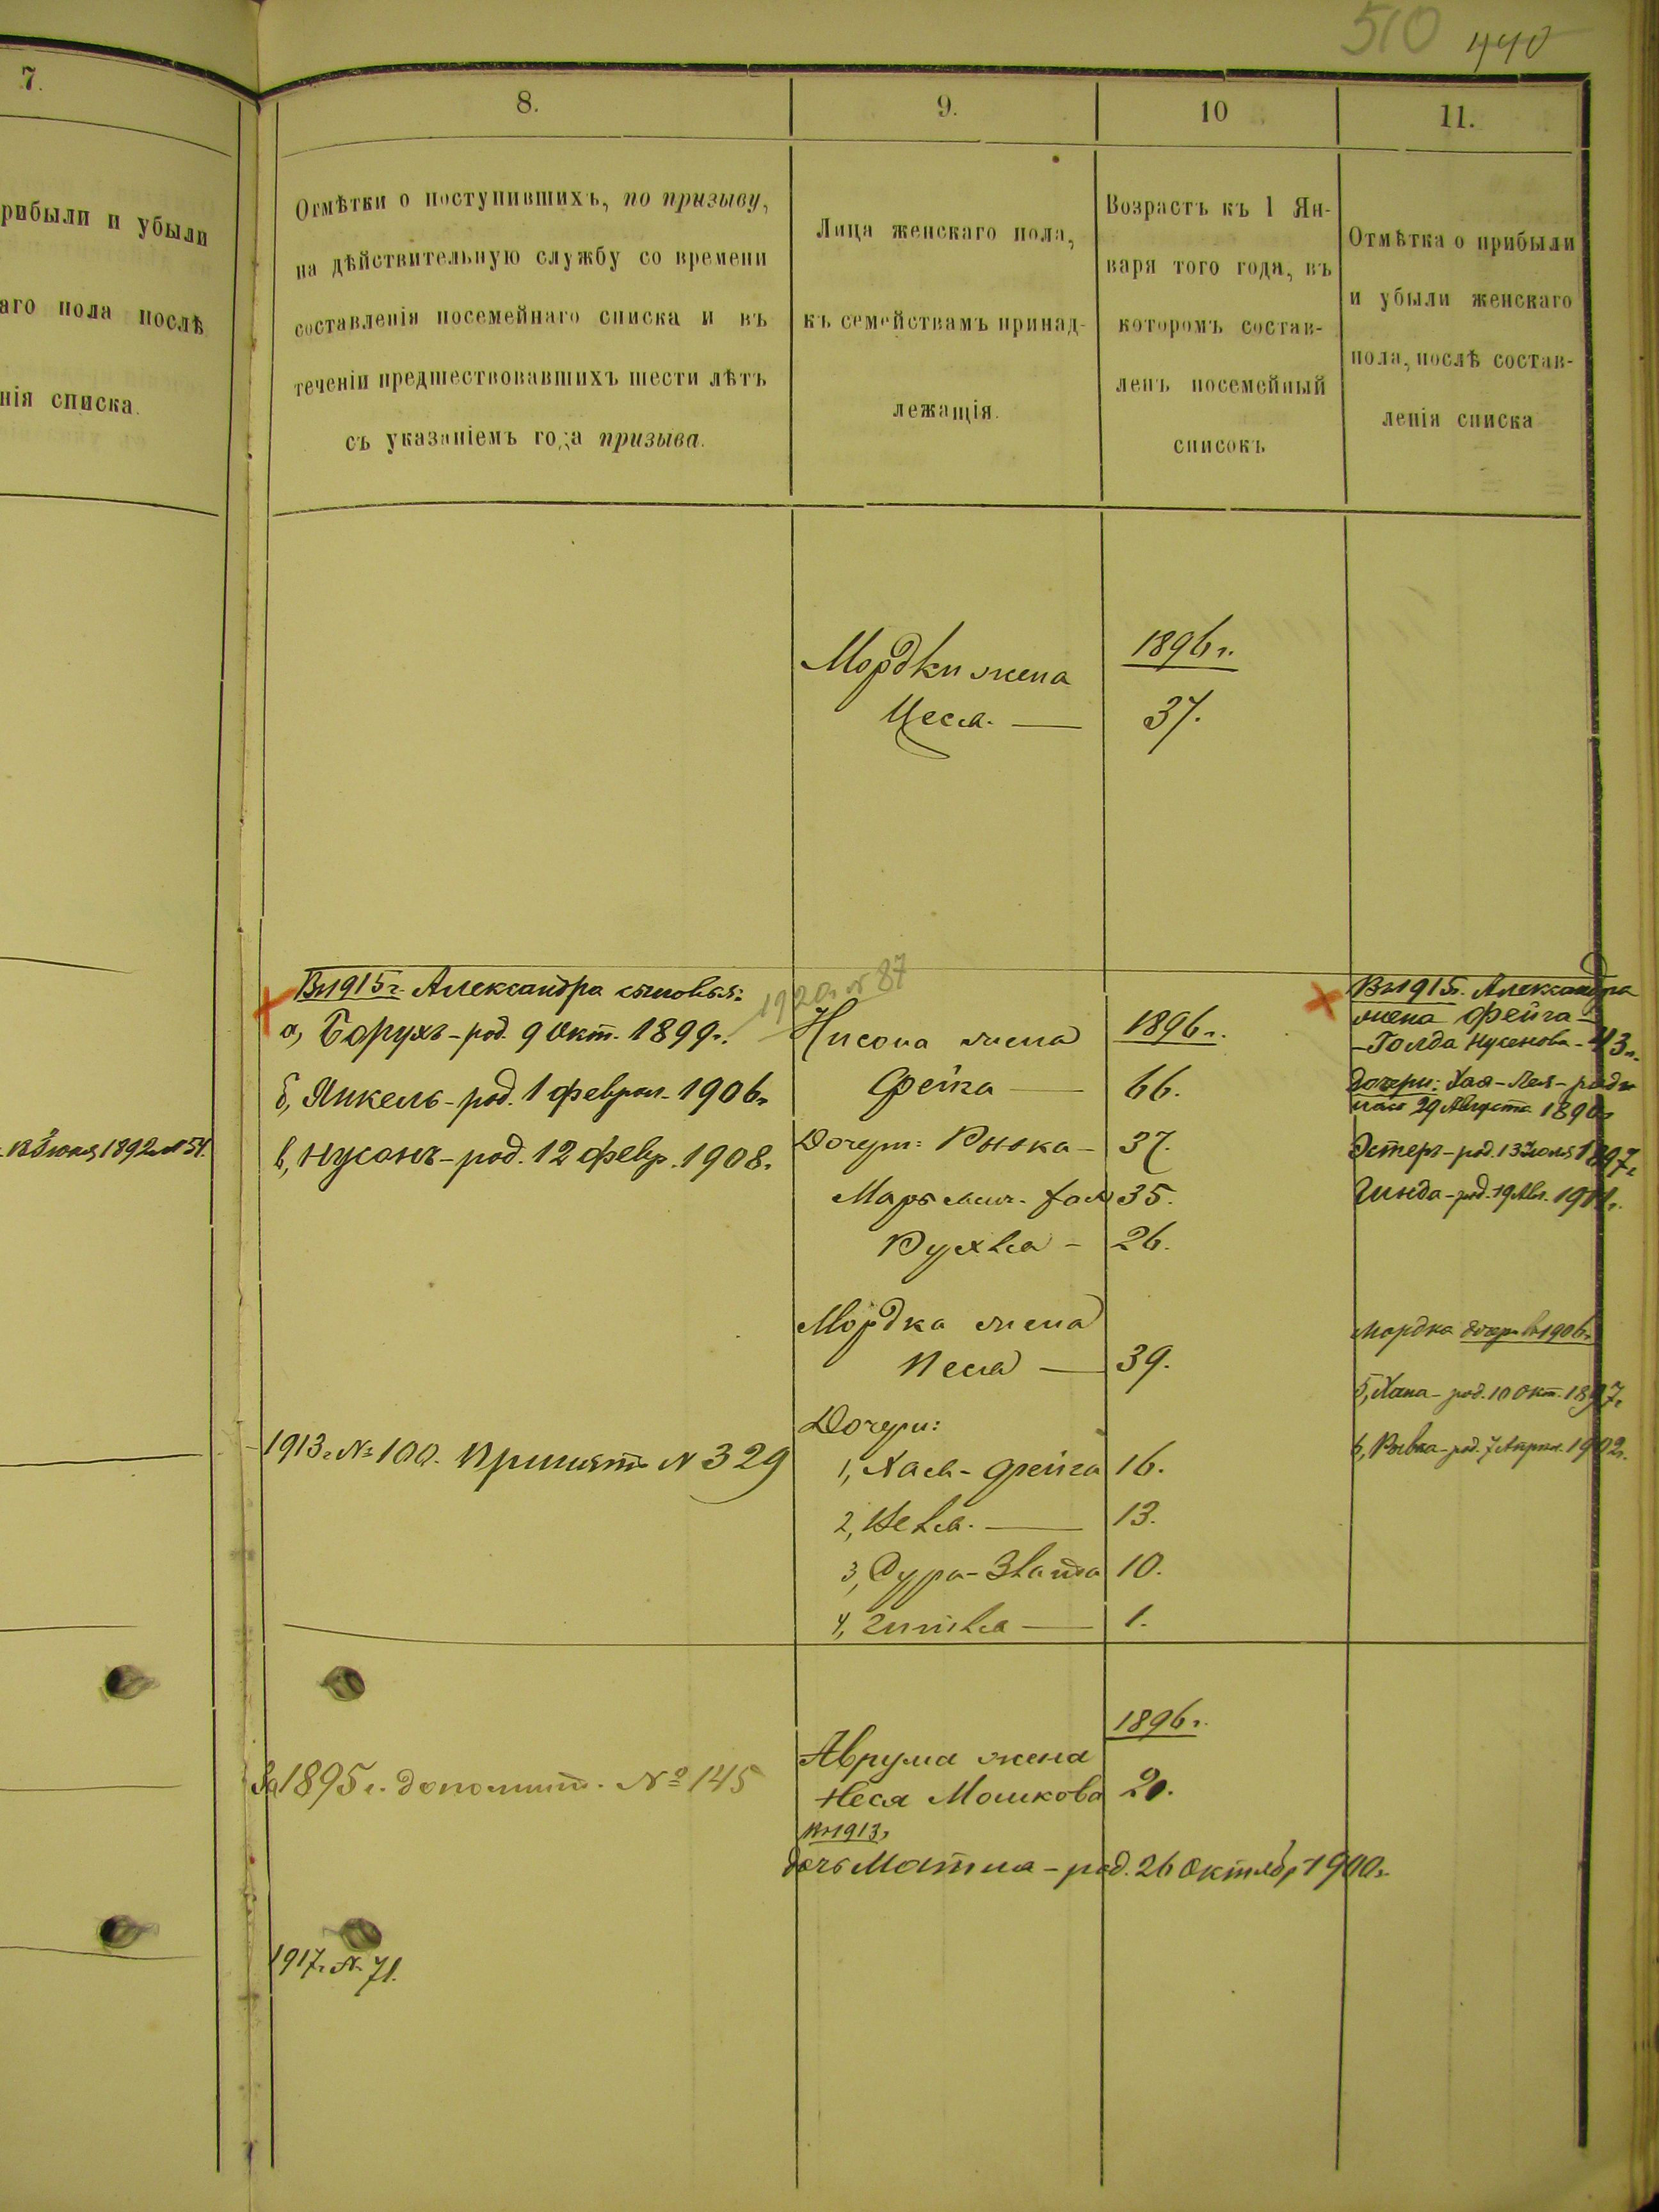 510 440
7.
рибыли и убыли
аго пола послѣ
нія списка.
8.
9.
10
11.
Отмѣтки о поступившихъ, по призыву,
на дѣйствительную службу со времени
составленія посемейнаго списка и въ
теченіи предшествовавшихъ шести лѣтъ
съ указаніемъ года призыва.
Лица женскаго пола,
къ семействамъ принад-
лежащія.
Возрастъ къ 1 Ян-
варя того года, въ
которомъ состав-
ленъ посемейный
списокъ
Отмѣтка о прибыли
и убыли женскаго
пола, послѣ состав-
ленія списка
1896 г.
Мордки жена
37.
1892 № 54.
Въ 1915 г. Александра сыновья:
а, Борухъ - род. 9 Окт. 1899 г.
б, Янкель - род. 1 феврал. 1906 г.
в, Нусонъ - род. 12 февр. 1908 г.
1920 г № 87
1896 г.
Нисона жена
Фейга — 66.
Дочери: Рывка - 37.
35.
Рухля - 26.
Мордка жена
Песя — 39.
Дочери:
1, Хая - Фейга 16.
2, 13.
3, 10.
4, 1.
Въ 1915 г. Александра
жена Фейга -
- Голда Нусенова - 43 г.
Дочери: Хая - Лея - роди
лась 29 Августа 1890 г
Эстеръ - род. 13 Іюля 1897 г
Гинда - род. 19 Авг. 1911 г.
Мордка дочери въ 1906 г.
5, Хана - род. 10 Окт. 1897 г
6, Рывка - род. 7 Апрѣл. 1902 г.
1913 г. № 100. Принятъ № 329
1896 г.
Аврума жена
Неся Мошкова 20.
въ 1913 г
дочь Матля - род. 26 Октябр 1900 г.
За 1895 г. дополнит. № 145
1917 г. № 71.